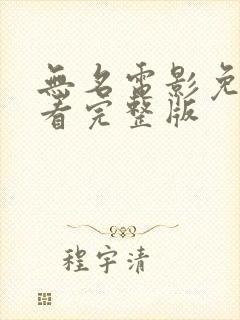 無名電影免
看完整版
程宇清